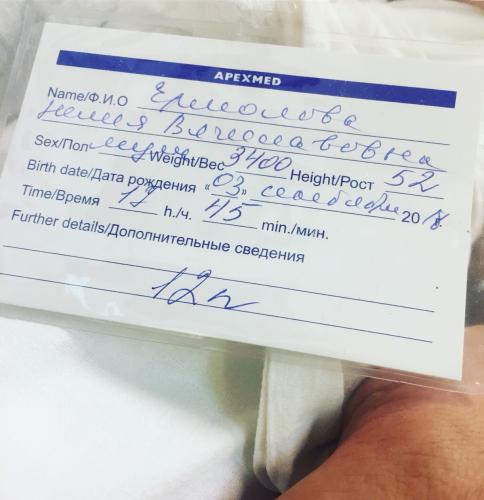 APEXMED
Name/Ф.И.О Ермолова
Юлия Вячеславовна
Sex/Пол муж Weight/Вес 3400 Height/Рост 52
Birth date/Дата рождения «03» сентября 2018г.
Time/Время 17 h./ч. 45 min./мин.
Further details/Дополнительные сведения
12п